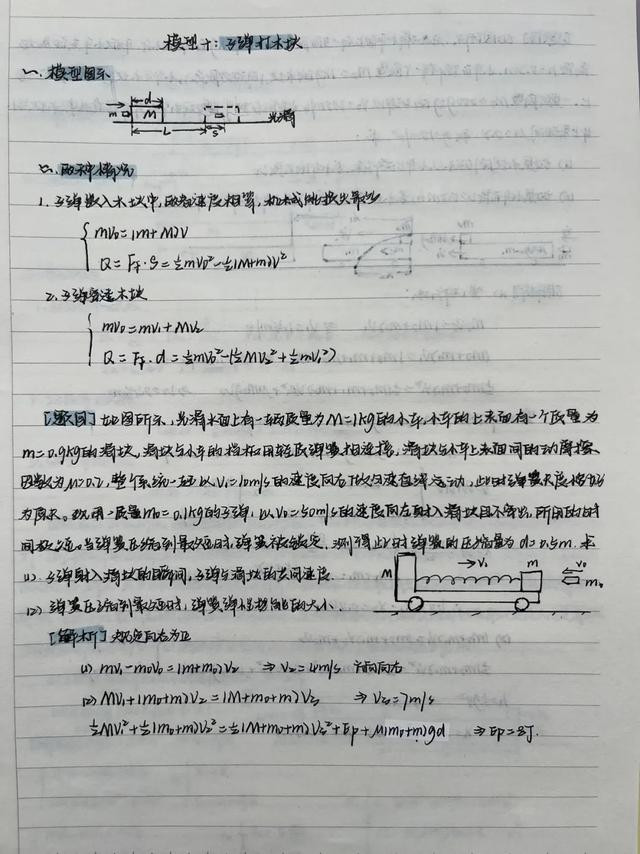 模型十：子弹打木块
一. 模型图示
m d M L S 光滑
二. 两种情况
1. 子弹嵌入木块中，两者速度相等，机械能损失最多
mv₀=(m+M)v
Q=F_f·S=½mv₀²-½(M+m)v²
2. 子弹穿透木块
mv₀=mv₁+Mv₂
Q=F_f·d=½mv₀²-(½Mv₂²+½mv₁²)
[题目] 如图所示，光滑水平面上有一辆质量为M=1kg的小车，小车的上表面有一个质量为
m=0.9kg的滑块，滑块与小车的挡板用轻质弹簧相连接，滑块与小车上表面间的动摩擦
因数为μ=0.2，整个系统一起以V₁=10m/s的速度向右做匀速直线运动，此时弹簧长度恰好
为原长。现用一质量m₀=0.1kg的子弹，以V₀=50m/s的速度向左射入滑块且不穿出，所用的时
间极短。当弹簧压缩到最短时，弹簧被锁定，测得此时弹簧的压缩量为d=0.5m. 求
(1). 子弹射入滑块的瞬间，子弹与滑块的共同速度.
M V₁ m V₀ m₀
(2). 弹簧压缩到最短时，弹簧弹性势能的大小.
[解析] 规定向右为正
(1) mv₁-m₀v₀=(m+m₀)v₂ ⇒ v₂=4m/s 方向向右
(2) MV₁+(m₀+m)V₂=(M+m₀+m)V₃ ⇒ V₃=7m/s
½MV₁²+½(m₀+m)V₂²=½(M+m₀+m)V₃²+Ep+μ(m₀+m)gd ⇒ Ep=8J.